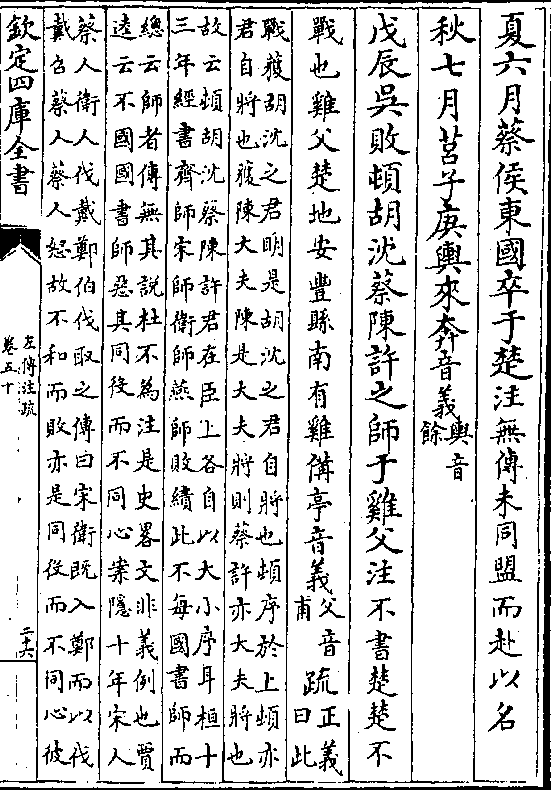 夏六月蔡侯東國卒于楚注無傳未同盟而赴以名
秋七月莒子庚輿來奔音義輿音餘
戊辰吳敗頓胡沈蔡陳許之師于雞父注不書楚楚不
戰也雞父楚地安豐縣南有雞備亭音義父音甫疏正義曰此
戰獲胡沈之君明是胡沈之君自將也頓序於上頓亦
君自將也獲陳大夫陳是大夫將則蔡許亦大夫將也
故云頓胡沈蔡陳許君在臣上各自以大小序耳桓十
三年經書齊師宋師衛師燕師敗績此不每國書師而
總云師者傳無其說杜不為注是史畧文非義例也賈
逵云不國國書師惡其同役而不同心案隱十年宋人
蔡人衛人伐戴鄭伯伐取之傳曰宋衛既入鄭而以伐
戴召蔡人蔡人怒故不和而敗亦是同役而不同心彼
欽定四庫全書
左傳注疏
卷五十
二十六